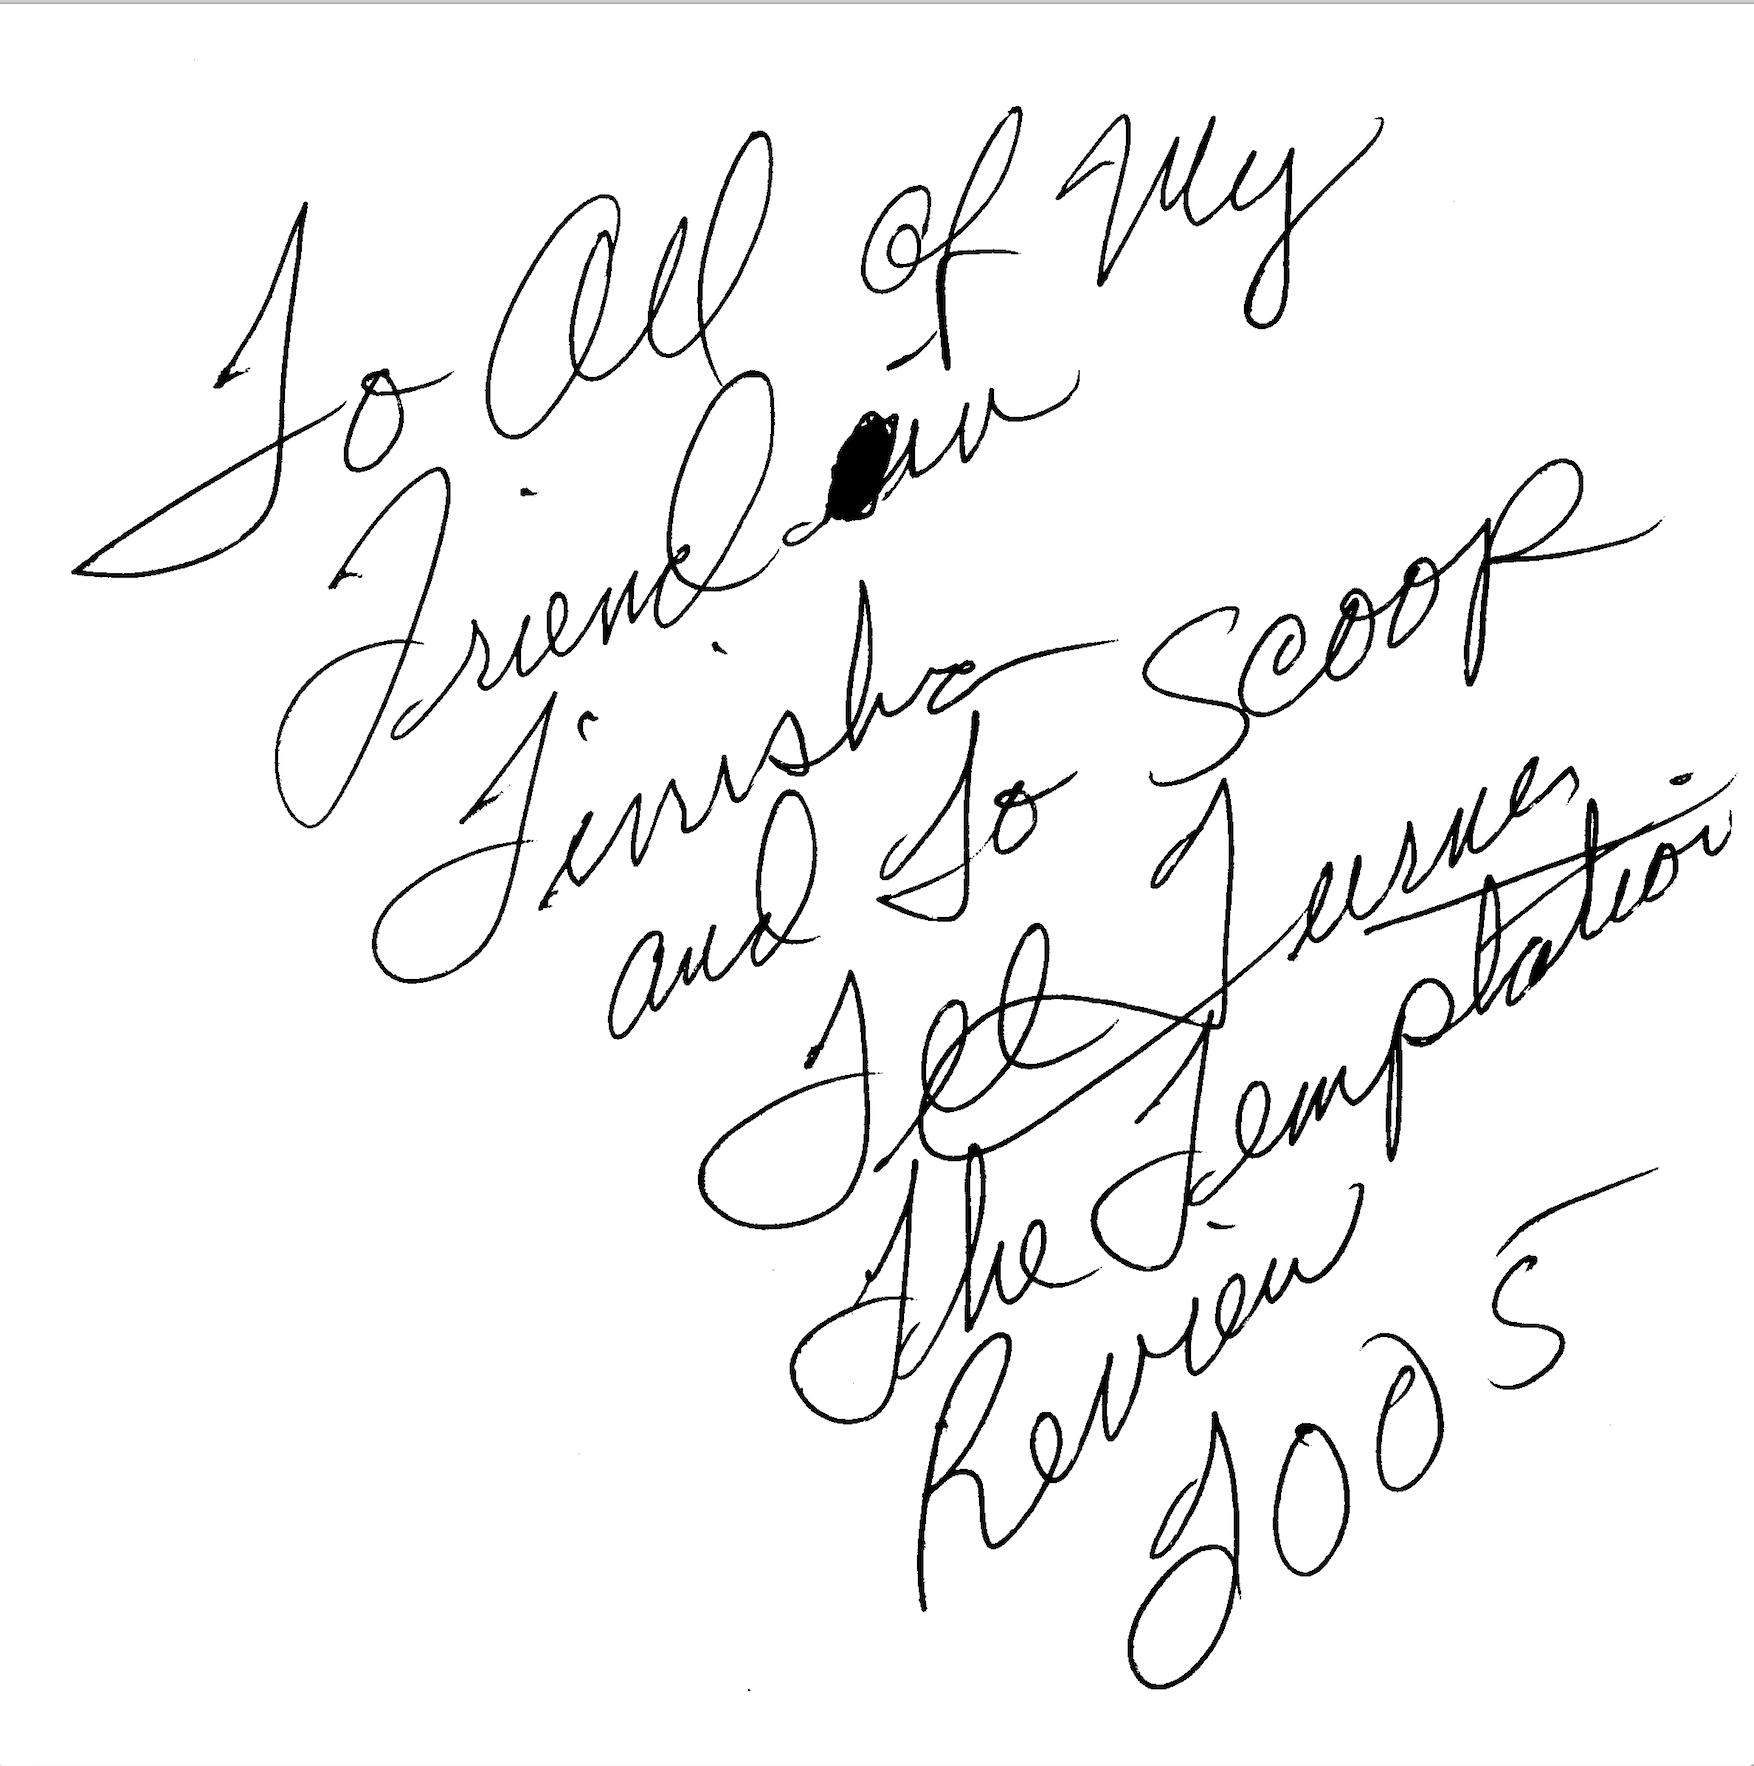 To All of My
Friend in
Finisha
and To Scoop
Ted Turner
The Temptation
Review
2005